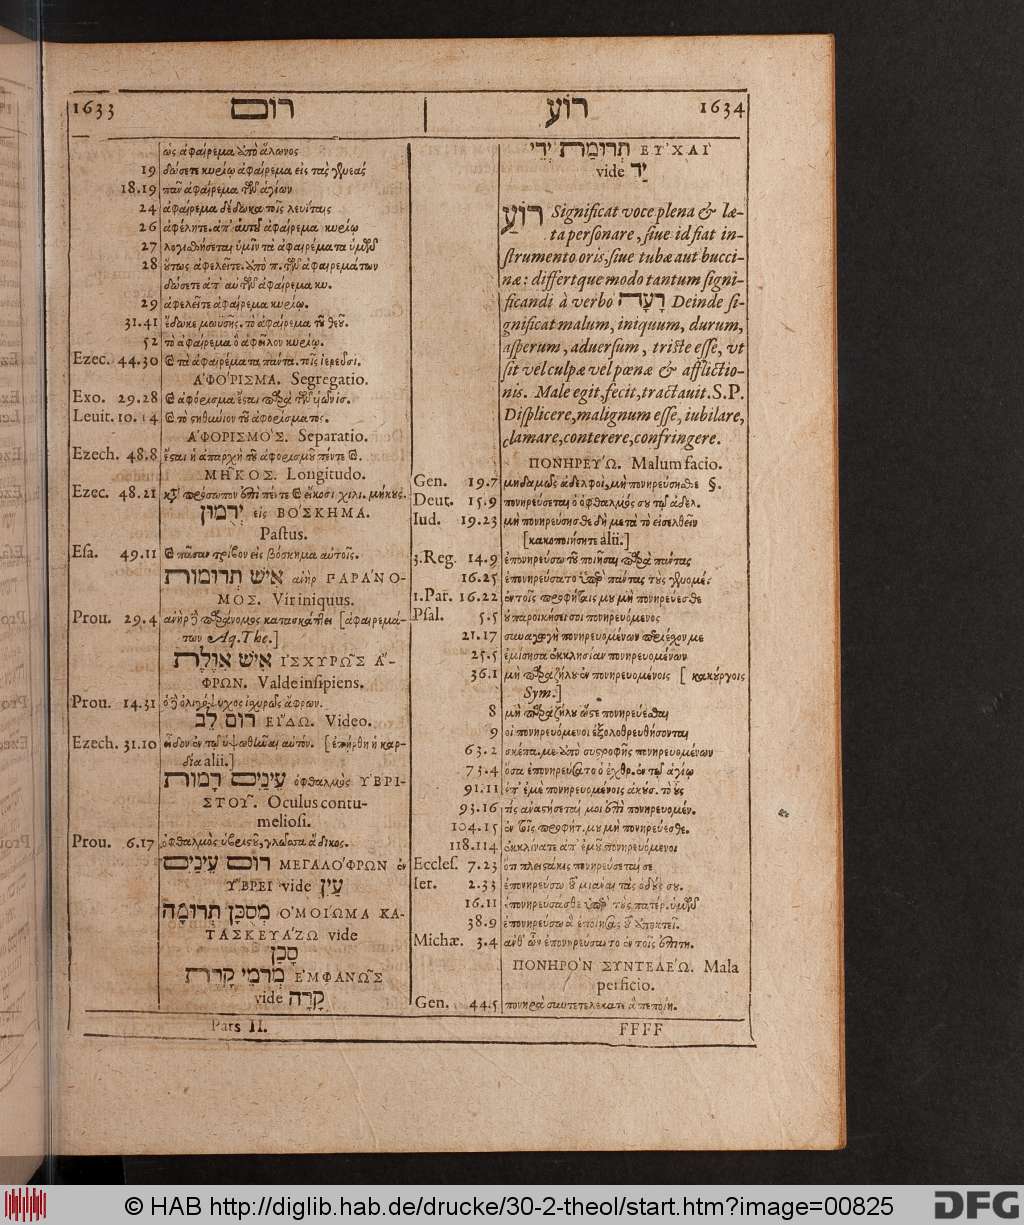 1633 רום
ὡς ἀφαίρεμα ἀπὸ ἅλωνος
19 δώσετε κυρίῳ ἀφαίρεμα εἰς τὰς γενεὰς
18.19 πᾶν ἀφαίρεμα τῶν ἁγίων
24 ἀφαίρεμα δέδωκα τοῖς λευίταις
26 ἀφέλητε. ἀπ' αὐτοῦ ἀφαίρεμα κυρίῳ
27 λογισθήσεται ὑμῖν τὰ ἀφαιρέματα ὑμῶν
28 οὕτως ἀφελεῖτε. ἀπὸ π. τῶν ἀφαιρεμάτων
δώσετε ἀπ' αὐτῶν ἀφαίρεμα κυ.
29 ἀφελεῖτε ἀφαίρεμα κυρίῳ.
31.41 ἔδωκε μωϋσῆς. τὸ ἀφαίρεμα τοῦ θεοῦ.
52 τὸ ἀφαίρεμα ὃ ἀφεῖλον κυρίῳ.
Ezec. 44.30 καὶ τὰ ἀφαιρέματα πάντα. τοῖς ἱερεῦσι.
ἈΦΌΡΙΣΜΑ. Segregatio.
Exo. 29.28 καὶ ἀφόρισμα ἔσται παρὰ τῶν υἱῶν ἰσ.
Leuit. 10.14 καὶ τὸ στηθύνιον τοῦ ἀφορίσματος.
ἈΦΟΡΙΣΜΌΣ. Separatio.
Ezech. 48.8 ἔσται ἡ ἀπαρχὴ τοῦ ἀφορισμοῦ πέντε καὶ.
ΜΗ͂ΚΟΣ. Longitudo.
Ezec. 48.21 κατὰ πρόσωπον ἐπὶ πέντε καὶ εἴκοσι χιλι. μήκους.
יְרֻמוּן εἰς ΒΌΣΚΗΜΑ.
Pastus.
Esa. 49.11 καὶ πᾶσαν τρίβον εἰς βόσκημα αὐτοῖς.
איש תרומות ἀνὴρ ΠΑΡΆΝΟ-
ΜΟΣ. Vir iniquus.
Prou. 29.4 ἀνὴρ δὲ παράνομος κατασκάπτει [ἀφαιρεμά-
των Aq. The.]
איש אולת ἸΣΧΥΡΩ͂Σ Ἄ-
ΦΡΩΝ. Valde insipiens.
Prou. 14.31 ὁ δὲ ὀλιγόψυχος ἰσχυρῶς ἄφρων.
רום לב ΕἼΔΩ. Video.
Ezech. 31.10 εἶδον ἐν τῷ ὑψωθῆναι αὐτόν. [ἐπήρθη ἡ καρ-
δία alii.]
עינים רמות ὀφθαλμὸς ὙΒΡΙ-
ΣΤΟΥ͂. Oculus contu-
meliosi.
Prou. 6.17 ὀφθαλμὸς ὑβριστοῦ, γλῶσσα ἄδικος.
רום עינים ΜΕΓΑΛΌΦΡΩΝ ἐν
ὝΒΡΕΙ vide עין
מסכן תרומה ὉΜΟΊΩΜΑ ΚΑ-
ΤΑΣΚΕΥΆΖΩ vide
סָכַן
מרמי קרת ἘΜΦΑΝΩ͂Σ
vide קרה
Pars II.
רוע 1634
תרומת ידי ΕΥ̓ΧΑῚ
vide יד
רוע Significat voce plena & læ-
ta personare, siue id fiat in-
strumento oris, siue tubæ aut bucci-
næ: differtque modo tantum signi-
ficandi à verbo רעה Deinde si-
gnificat malum, iniquum, durum,
asperum, aduersum, triste esse, vt
sit vel culpæ vel pœnæ & afflictio-
nis. Male egit, fecit, tractauit. S.P.
Displicere, malignum esse, iubilare,
clamare, conterere, confringere.
ΠΟΝΗΡΕΎΩ. Malum facio.
Gen. 19.7 μηδαμῶς ἀδελφοὶ, μὴ πονηρεύσησθε §.
Deut. 15.9 πονηρεύσεται ὁ ὀφθαλμός σου τῷ ἀδελ.
Iud. 19.23 μὴ πονηρεύσησθε δὴ μετὰ τὸ εἰσελθεῖν
[κακοποιήσητε alii.]
3.Reg. 14.9 ἐπονηρεύσω τοῦ ποιῆσαι παρὰ πάντας
16.25 ἐπονηρεύσατο ὑπὲρ πάντας τοὺς γενομέ.
1.Par. 16.22 ἐν τοῖς προφήταις μου μὴ πονηρεύεσθε
Psal. 5.5 οὐ παροικήσει σοι πονηρευόμενος
21.17 συναγωγὴ πονηρευομένων περιέσχον με
25.5 ἐμίσησα ἐκκλησίαν πονηρευομένων
36.1 μὴ παραζήλου ἐν πονηρευομένοις [κακούργοις
Sym.]
8 μὴ παραζήλου ὥστε πονηρεύεσθαι
9 οἱ πονηρευόμενοι ἐξολοθρευθήσονται
63.2 σκέπα. με ἀπὸ συστροφῆς πονηρευομένων
73.4 ὅσα ἐπονηρεύσατο ὁ ἐχθρ. ἐν τῷ ἁγίῳ
91.11 ἐπ' ἐμὲ πονηρευομένοις ἀκουσ. τὸ οὖς
93.16 τίς ἀναστήσεταί μοι ἐπὶ πονηρευομέν.
104.15 ἐν τοῖς προφήτ. μου μὴ πονηρεύεσθε.
118.114 ἐκκλίνατε ἀπ' ἐμοῦ πονηρευόμενοι
Eccles. 7.23 ὅτι πλειστάκις πονηρεύσεταί σε
Ier. 2.33 ἐπονηρεύσω τοῦ μιᾶναι τὰς ὁδούς σου.
16.11 ἐπονηρεύσασθε ὑπὲρ τοὺς πατέρ. ὑμῶν
38.9 ἐπονηρεύσω ἃ ἐποίησας τοῦ ἀποκτεῖ.
Michæ. 3.4 ἀνθ' ὧν ἐπονηρεύσαντο ἐν τοῖς ἐπιτη.
ΠΟΝΗΡῸΝ ΣΥΝΤΕΛΈΩ. Mala
perficio.
Gen. 44.5 πονηρὰ συντετελέκατε ἃ πεποίη.
FFFF
© HAB http://diglib.hab.de/drucke/30-2-theol/start.htm?image=00825
DFG